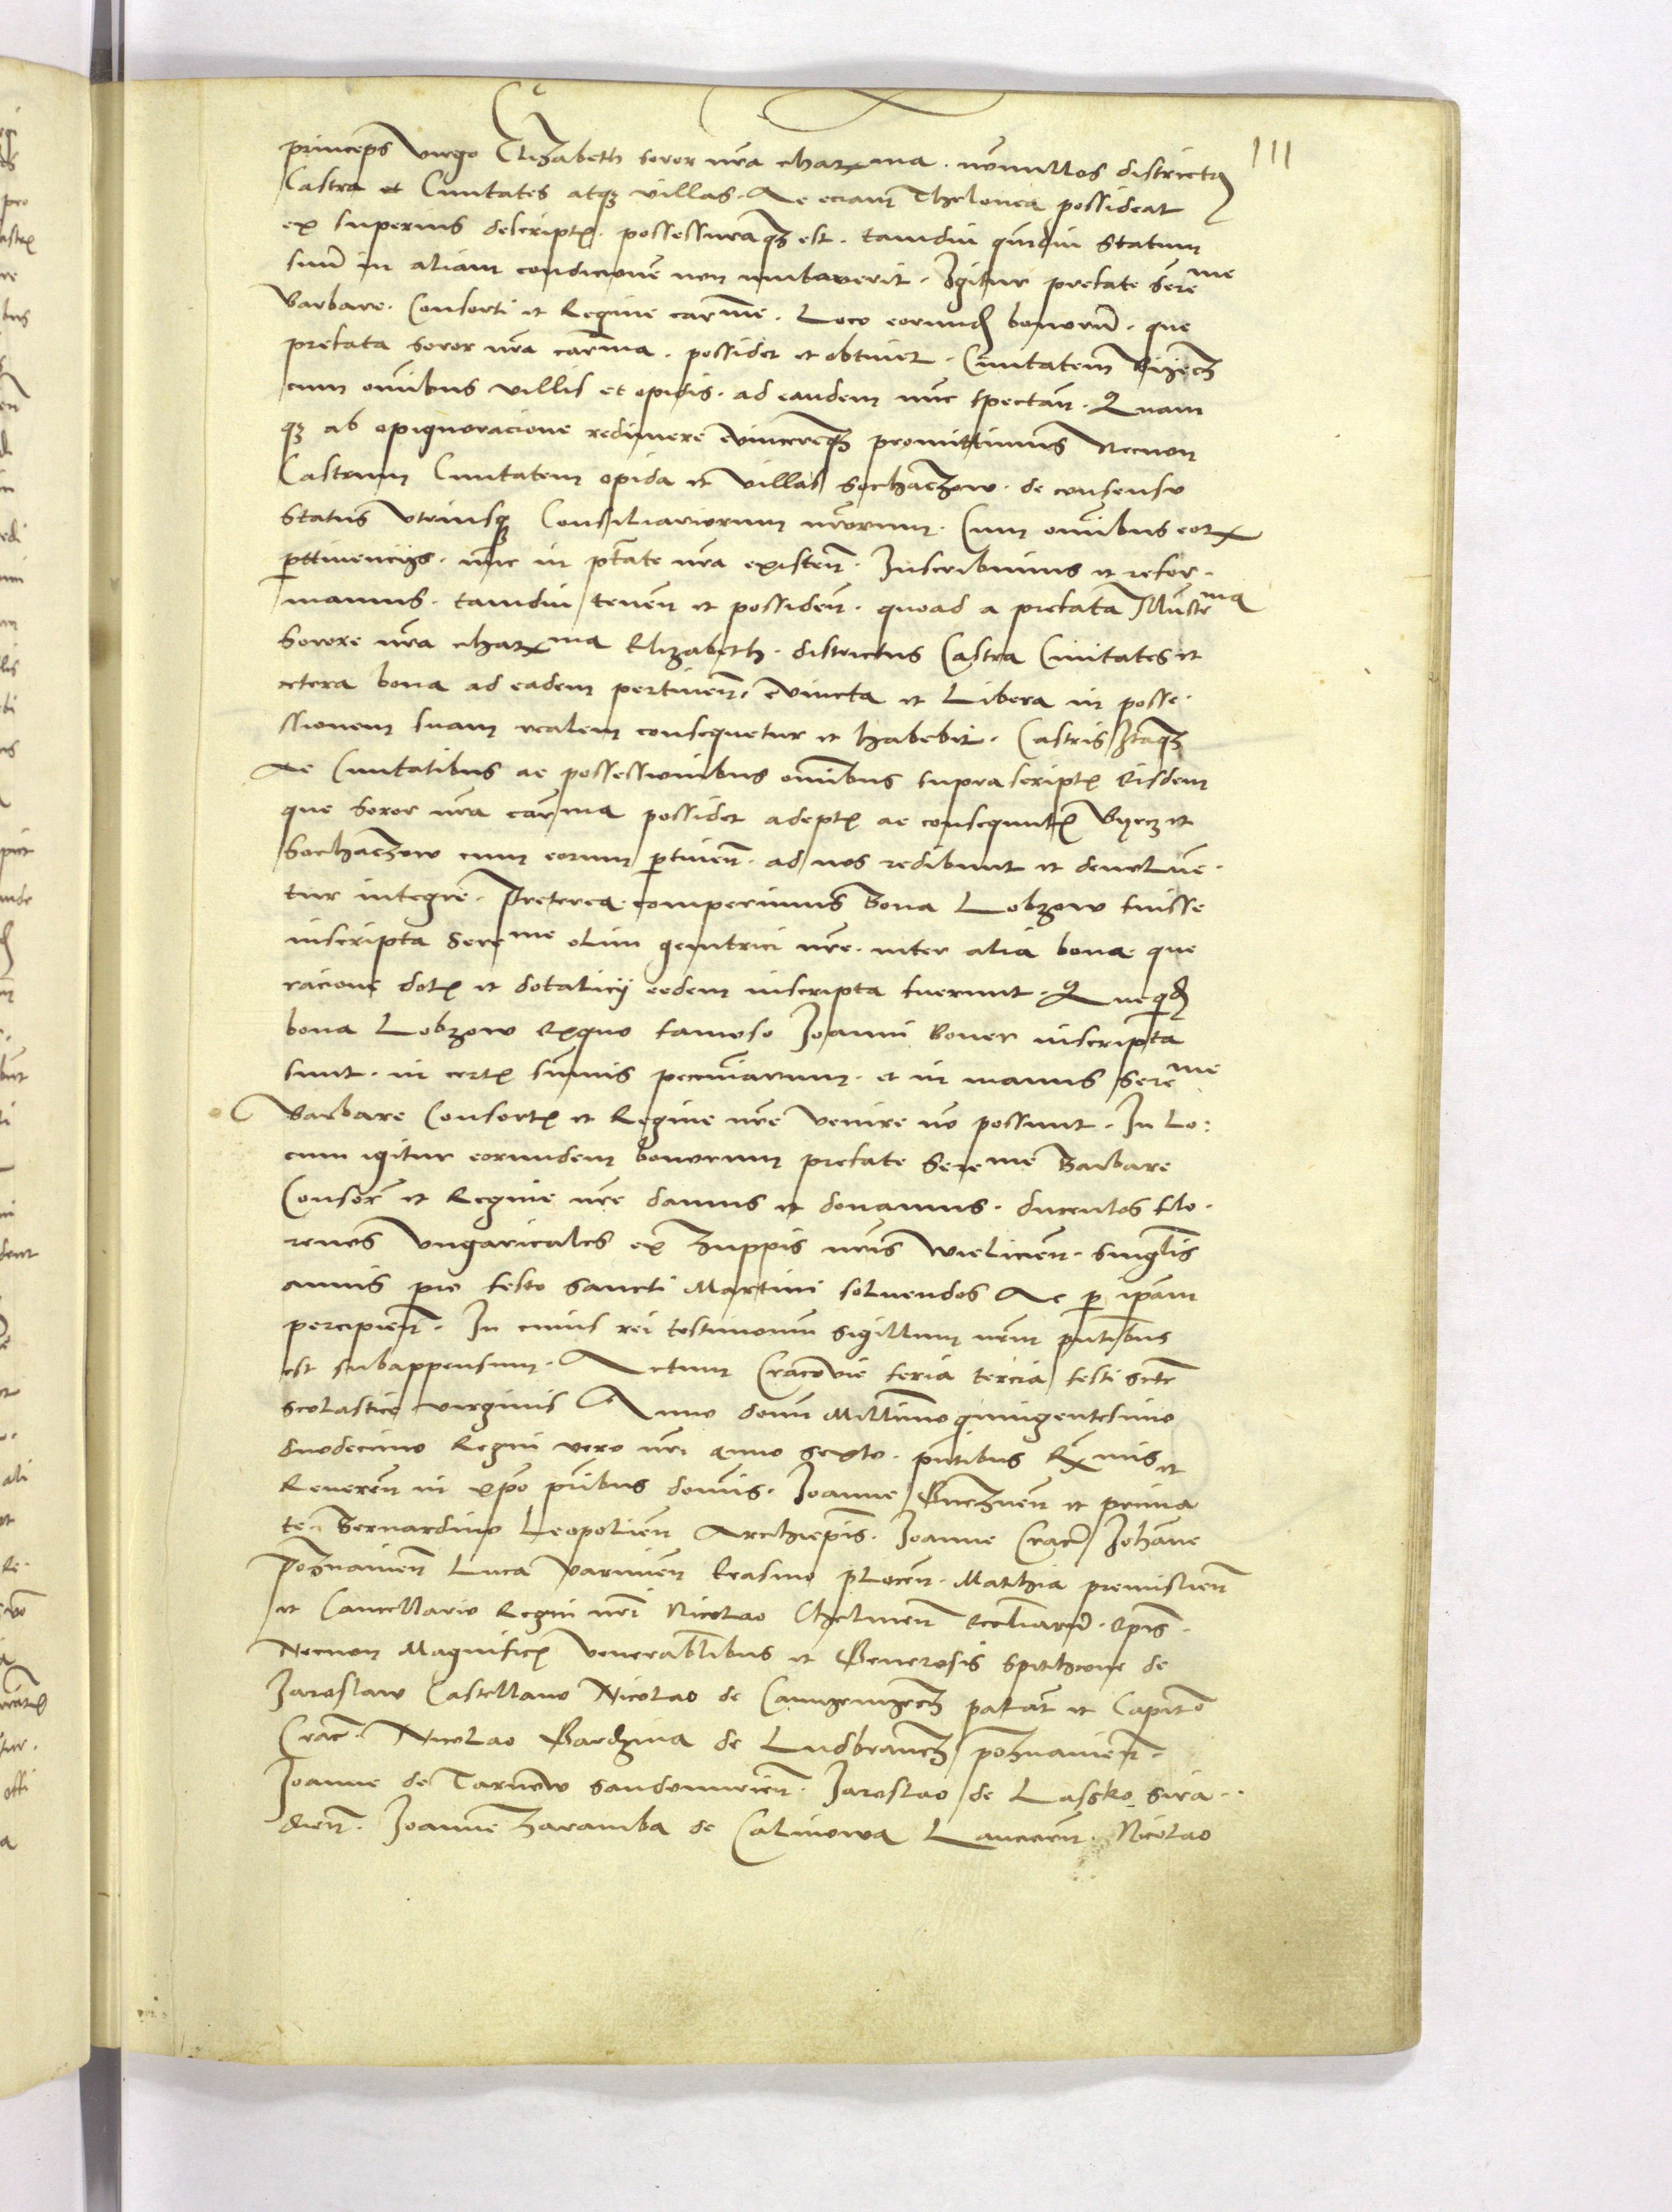 111
princeps virgo Elizabeth soror nra charma. nonnullos districtus
Castra et Civitates atqz villas. Ac eciam Thelonea possideat
ex superius descriptis. possessuraqz est. tamdiu quidiu statum
suu in aliam condicione non mutaverit. Igitur prefate Sereme
Barbare. Consorti et Regine carme. Loco eorund bonoru. que
prefata soror nra carma. possidet et obtinet. Civitatem Biiecz
cum omibus villis et opidis. ad eandem nunc spectan. Quam
qz ab opignoracione redimere evincereqz promittimus Necnon
Castrum Civitatem opida et villas Sochaczow. de consensu
status utriusqz Consiliariorum nrorum. Cum omibus eor
pttinenciys. nunc in ptate nra existen. Inscribimus et refor.
mamus. tamdiu tenen et possiden. quoad a prefata Illustrma
Sorore nra charma Elizabeth. districtus Castra Civitates et
cetera bona ad eadem pertinen. evincta et libera in posse.
ssionem suam realem consequetur et habebit. Castris Itaqz
Ac Civitatibus ac possessionibus omibus suprascriptis Eisdem
que soror nra carma possidet adeptis ac consequutis Byecz et
Sochaczow cum eorum ptinen. ad nos redibunt et devolve.
tur integre. Preterea comperimus Bona Lobzow fuisse
inscripta Sereme olim genitrici nre. inter alia bona que
racione dotis et dotalicij eedem inscripta fuerunt. Que quid
bona Lobzow Exquo famoso Joanni Boner inscripta
sunt. in certis sumis pecuniarum. et in manus Sereme
Barbare Consortis et Regine nre venire no possunt. In lo:
cum igitur eorundem bonorum prefate Sereme Barbare
Consorti et Regine nre damus et donamus. ducentos flo.
renos Ungaricales ex Zuppis nris Wielicien. singlis
annis pro festo Sancti Martini solvendos Ac p ipam
percipien. In cuius rei testimonium sigillum nrum pntibus
est subappensum. Actum Cracovie feria tercia festi scte
Scolastice virginis Anno domi Millimo quingentesimo
duodecimo Regni vero nri anno sexto. pntibus Rmis et
Reveren in xpo pribus domis. Joanne Gneznen et prima
te. Bernardino Leopolien Archiepis. Joanne Crac Johane
Poznanien Luca Varmien Erasmo plocen. Mathia premislien
et Cancellario Regni nri Nicolao Chelmen ecctiaru. Epis.
Necnon Magnificis venerabilibus et Generosis Spithcone de
Jaroslaw Castellano Nicolao de Camyenyecz palat et Capit
Crac. Nicolao Gardzina de Ludbrancz poznanien.
Joanne de Tarnow Sandomirien. Jaroslao de Lassko Sira..
dien. Joanne Zaramba de Calinowa Lancicien. Nicolao